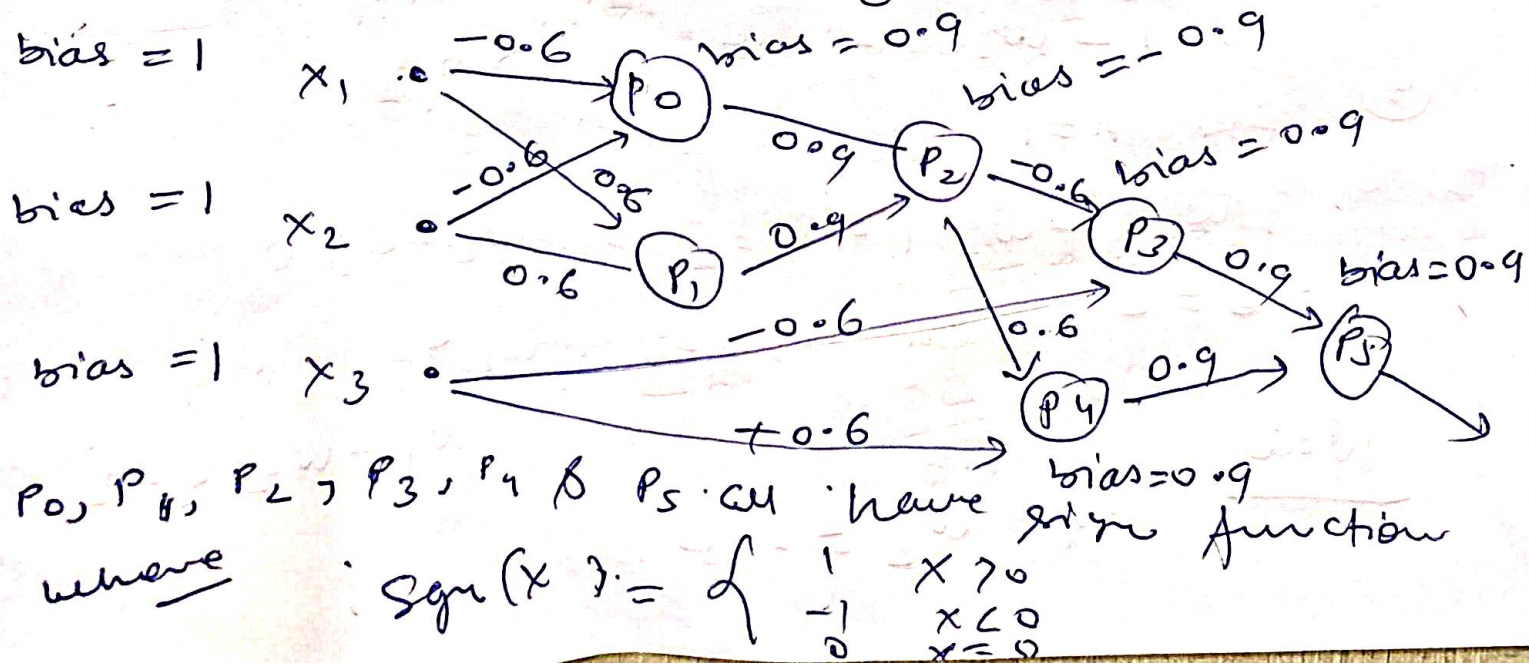 bias = 1 x1 -0.6 P0 bias = 0.9
bias = -0.9
-0.6 0.6 0.9 P2 -0.6 bias = 0.9
bias = 1 x2 0.6 P1 0.9 P3 0.9 bias=0.9
bias = 1 x3 -0.6 0.6 P5
+0.6 P4 0.9
bias=0.9
P0, P1, P2, P3, P4 & P5 all have sign function
where sgn(x) = { 1 x>0
-1 x<0
0 x=0